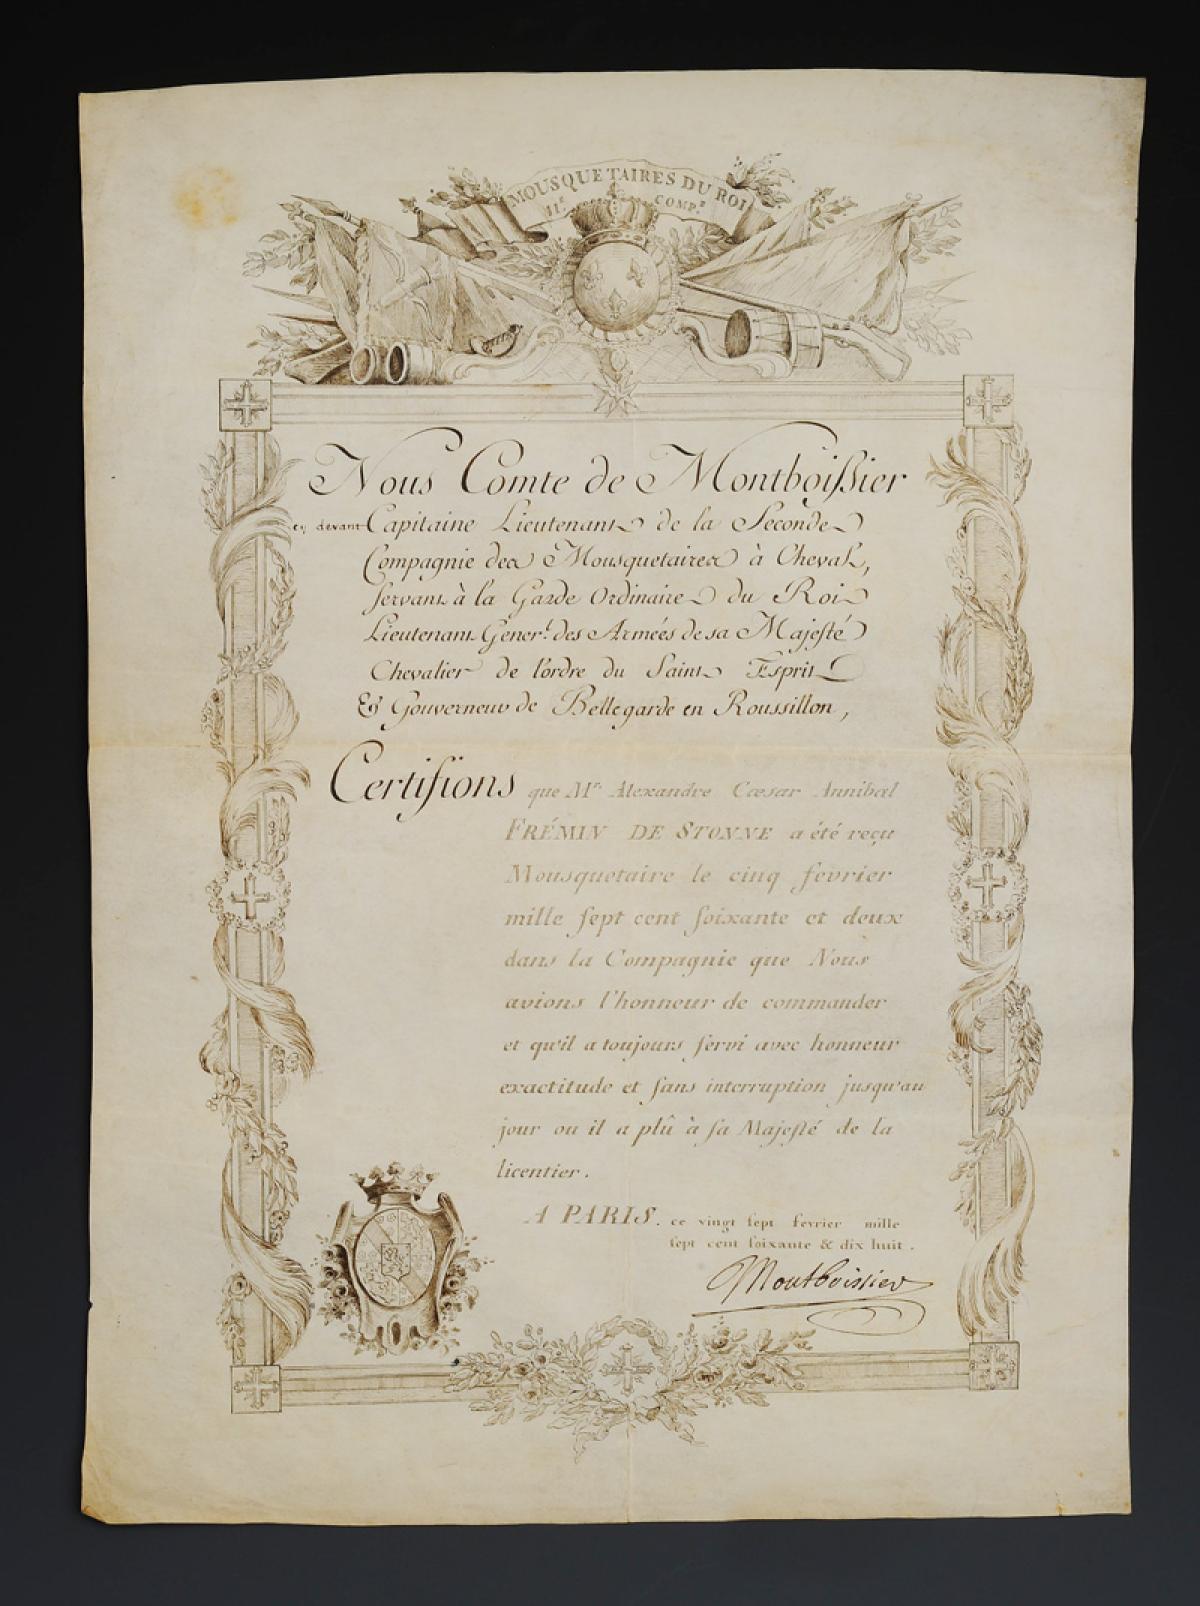 MOUSQUETAIRES DU ROI
II.e COMP.e
Nous Comte de Montboissier
cy devant Capitaine Lieutenant de la Seconde
Compagnie des Mousquetaires à Cheval,
servant à la Garde Ordinaire du Roi
Lieutenant Géner.l des Armées de sa Majesté
Chevalier de l'ordre du Saint Esprit
& Gouverneur de Bellegarde en Roussillon,
Certifions que Mr. Alexandre Cæsar Annibal
FRÉMIN DE STONNE a été reçu
Mousquetaire le cinq fevrier
mille sept cent soixante et deux
dans la Compagnie que Nous
avions l'honneur de commander
et qu'il a toujours servi avec honneur
exactitude et sans interruption jusqu'au
jour ou il a plû à sa Majesté de la
licentier.
A PARIS. ce vingt sept fevrier mille
sept cent soixante & dix huit.
Montboissier